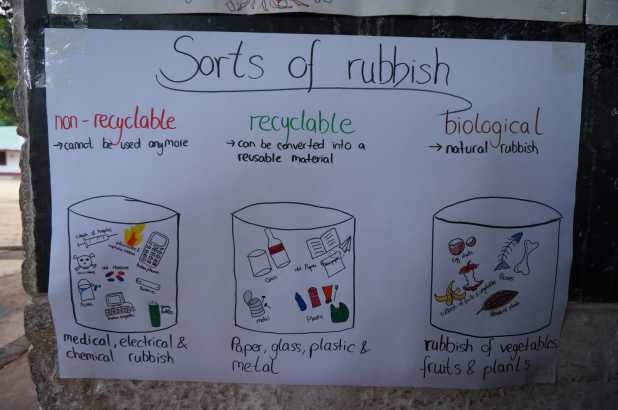 Sorts of rubbish
non-recyclable
→ cannot be used anymore
recyclable
→ can be converted into a
reusable material
biological
→ natural rubbish
old Medicine
Glass
old Paper
Metal
Plastic
Egg shells
Bones
medical, electrical &
chemical rubbish
Paper, glass, plastic &
metal
rubbish of vegetables,
fruits & plants